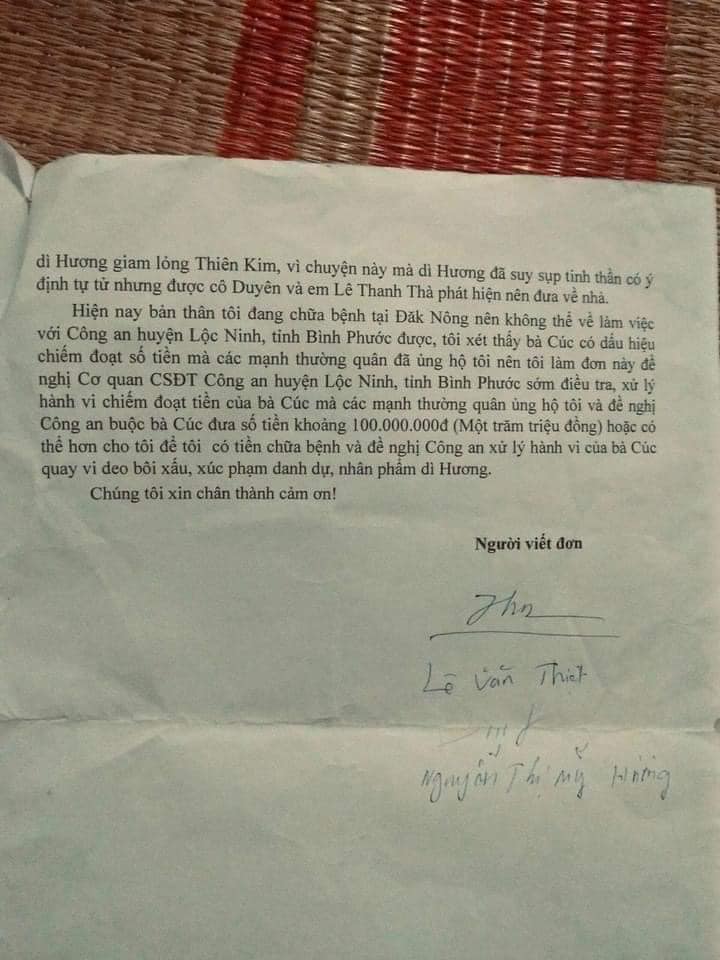 dì Hương giam lỏng Thiên Kim, vì chuyện này mà dì Hương đã suy sụp tinh thần có ý
định tự tử nhưng được cô Duyên và em Lê Thanh Thà phát hiện nên đưa về nhà.
Hiện nay bản thân tôi đang chữa bệnh tại Đăk Nông nên không thể về làm việc
với Công an huyện Lộc Ninh, tỉnh Bình Phước được, tôi xét thấy bà Cúc có dấu hiệu
chiếm đoạt số tiền mà các mạnh thường quân đã ủng hộ tôi nên tôi làm đơn này đề
nghị Cơ quan CSĐT Công an huyện Lộc Ninh, tỉnh Bình Phước sớm điều tra, xử lý
hành vi chiếm đoạt tiền của bà Cúc mà các mạnh thường quân ủng hộ tôi và đề nghị
Công an buộc bà Cúc đưa số tiền khoảng 100.000.000đ (Một trăm triệu đồng) hoặc có
thể hơn cho tôi để tôi có tiền chữa bệnh và đề nghị Công an xử lý hành vi của bà Cúc
quay vi deo bôi xấu, xúc phạm danh dự, nhân phẩm dì Hương.
Chúng tôi xin chân thành cảm ơn!
Người viết đơn
Lê Văn Thiết
Nguyễn Thị Mỹ Hương